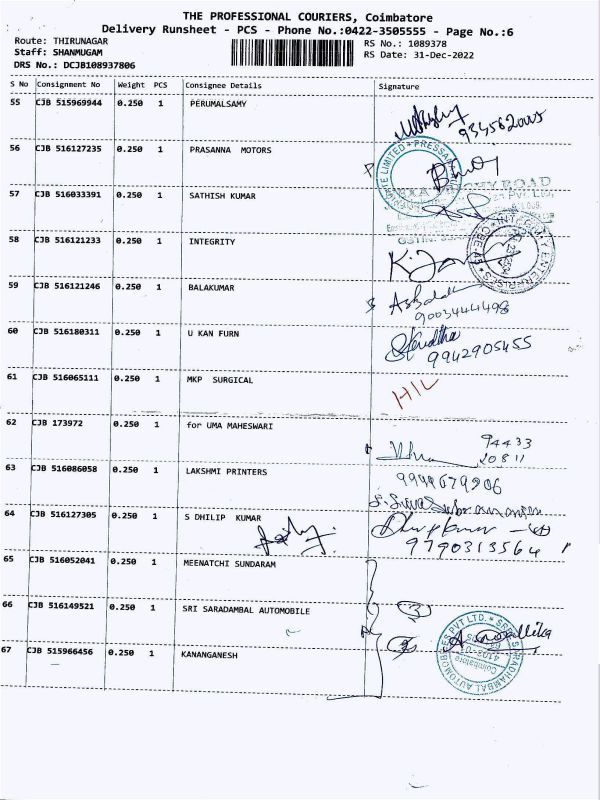 THE PROFESSIONAL COURIERS, Coimbatore
Delivery Runsheet - PCS - Phone No.:0422-3505555 - Page No.:6
Route: THIRUNAGAR
Staff: SHANMUGAM
DRS No.: DCJB108937806
RS No.: 1089378
RS Date: 31-Dec-2022
S No Consignment No Weight PCS Consignee Details Signature
55 CJB 515969944 0.250 1 PERUMALSAMY
934562005
56 CJB 516127235 0.250 1 PRASANNA MOTORS
57 CJB 516033391 0.250 1 SATHISH KUMAR
58 CJB 516121233 0.250 1 INTEGRITY
59 CJB 516121246 0.250 1 BALAKUMAR
9003444498
60 CJB 516180311 0.250 1 U KAN FURN
9942905455
61 CJB 516065111 0.250 1 MKP SURGICAL
H/L
62 CJB 173972 0.250 1 for UMA MAHESWARI
94433
20811
63 CJB 516086058 0.250 1 LAKSHMI PRINTERS
64 CJB 516127305 0.250 1 S DHILIP KUMAR
9790313564
65 CJB 516052041 0.250 1 MEENATCHI SUNDARAM
66 CJB 516149521 0.250 1 SRI SARADAMBAL AUTOMOBILE
67 CJB 515966456 0.250 1 KANANGANESH